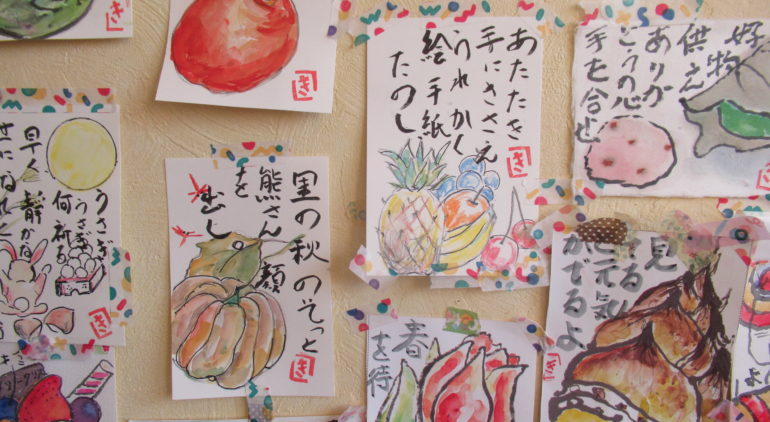 うさぎ
うさぎ
何祈る
早く 静かな
世になれと
里の秋 のそっと
熊さん 顔
を
出し
き
あたたき
手にささえ
られかく
絵手紙
たのし
き
好物
供え
ありが
とうの心
手を合せ
春
を待
見
てる
と元気
がでるよ
き